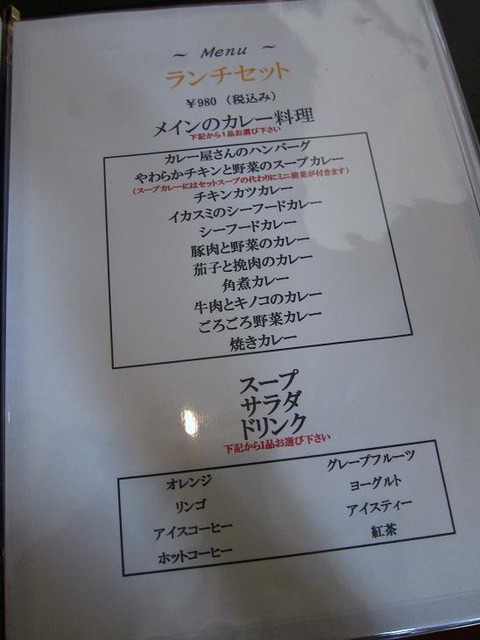 ~ Menu ~
ランチセット
￥980 （税込み）
メインのカレー料理
下記から1品お選び下さい
カレー屋さんのハンバーグ
やわらかチキンと野菜のスープカレー
(スープカレーにはセットスープの代わりにミニ前菜が付きます)
チキンカツカレー
イカスミのシーフードカレー
シーフードカレー
豚肉と野菜のカレー
茄子と挽肉のカレー
角煮カレー
牛肉とキノコのカレー
ごろごろ野菜カレー
焼きカレー
スープ
サラダ
ドリンク
下記から1品お選び下さい
オレンジ グレープフルーツ
リンゴ ヨーグルト
アイスコーヒー アイスティー
ホットコーヒー 紅茶